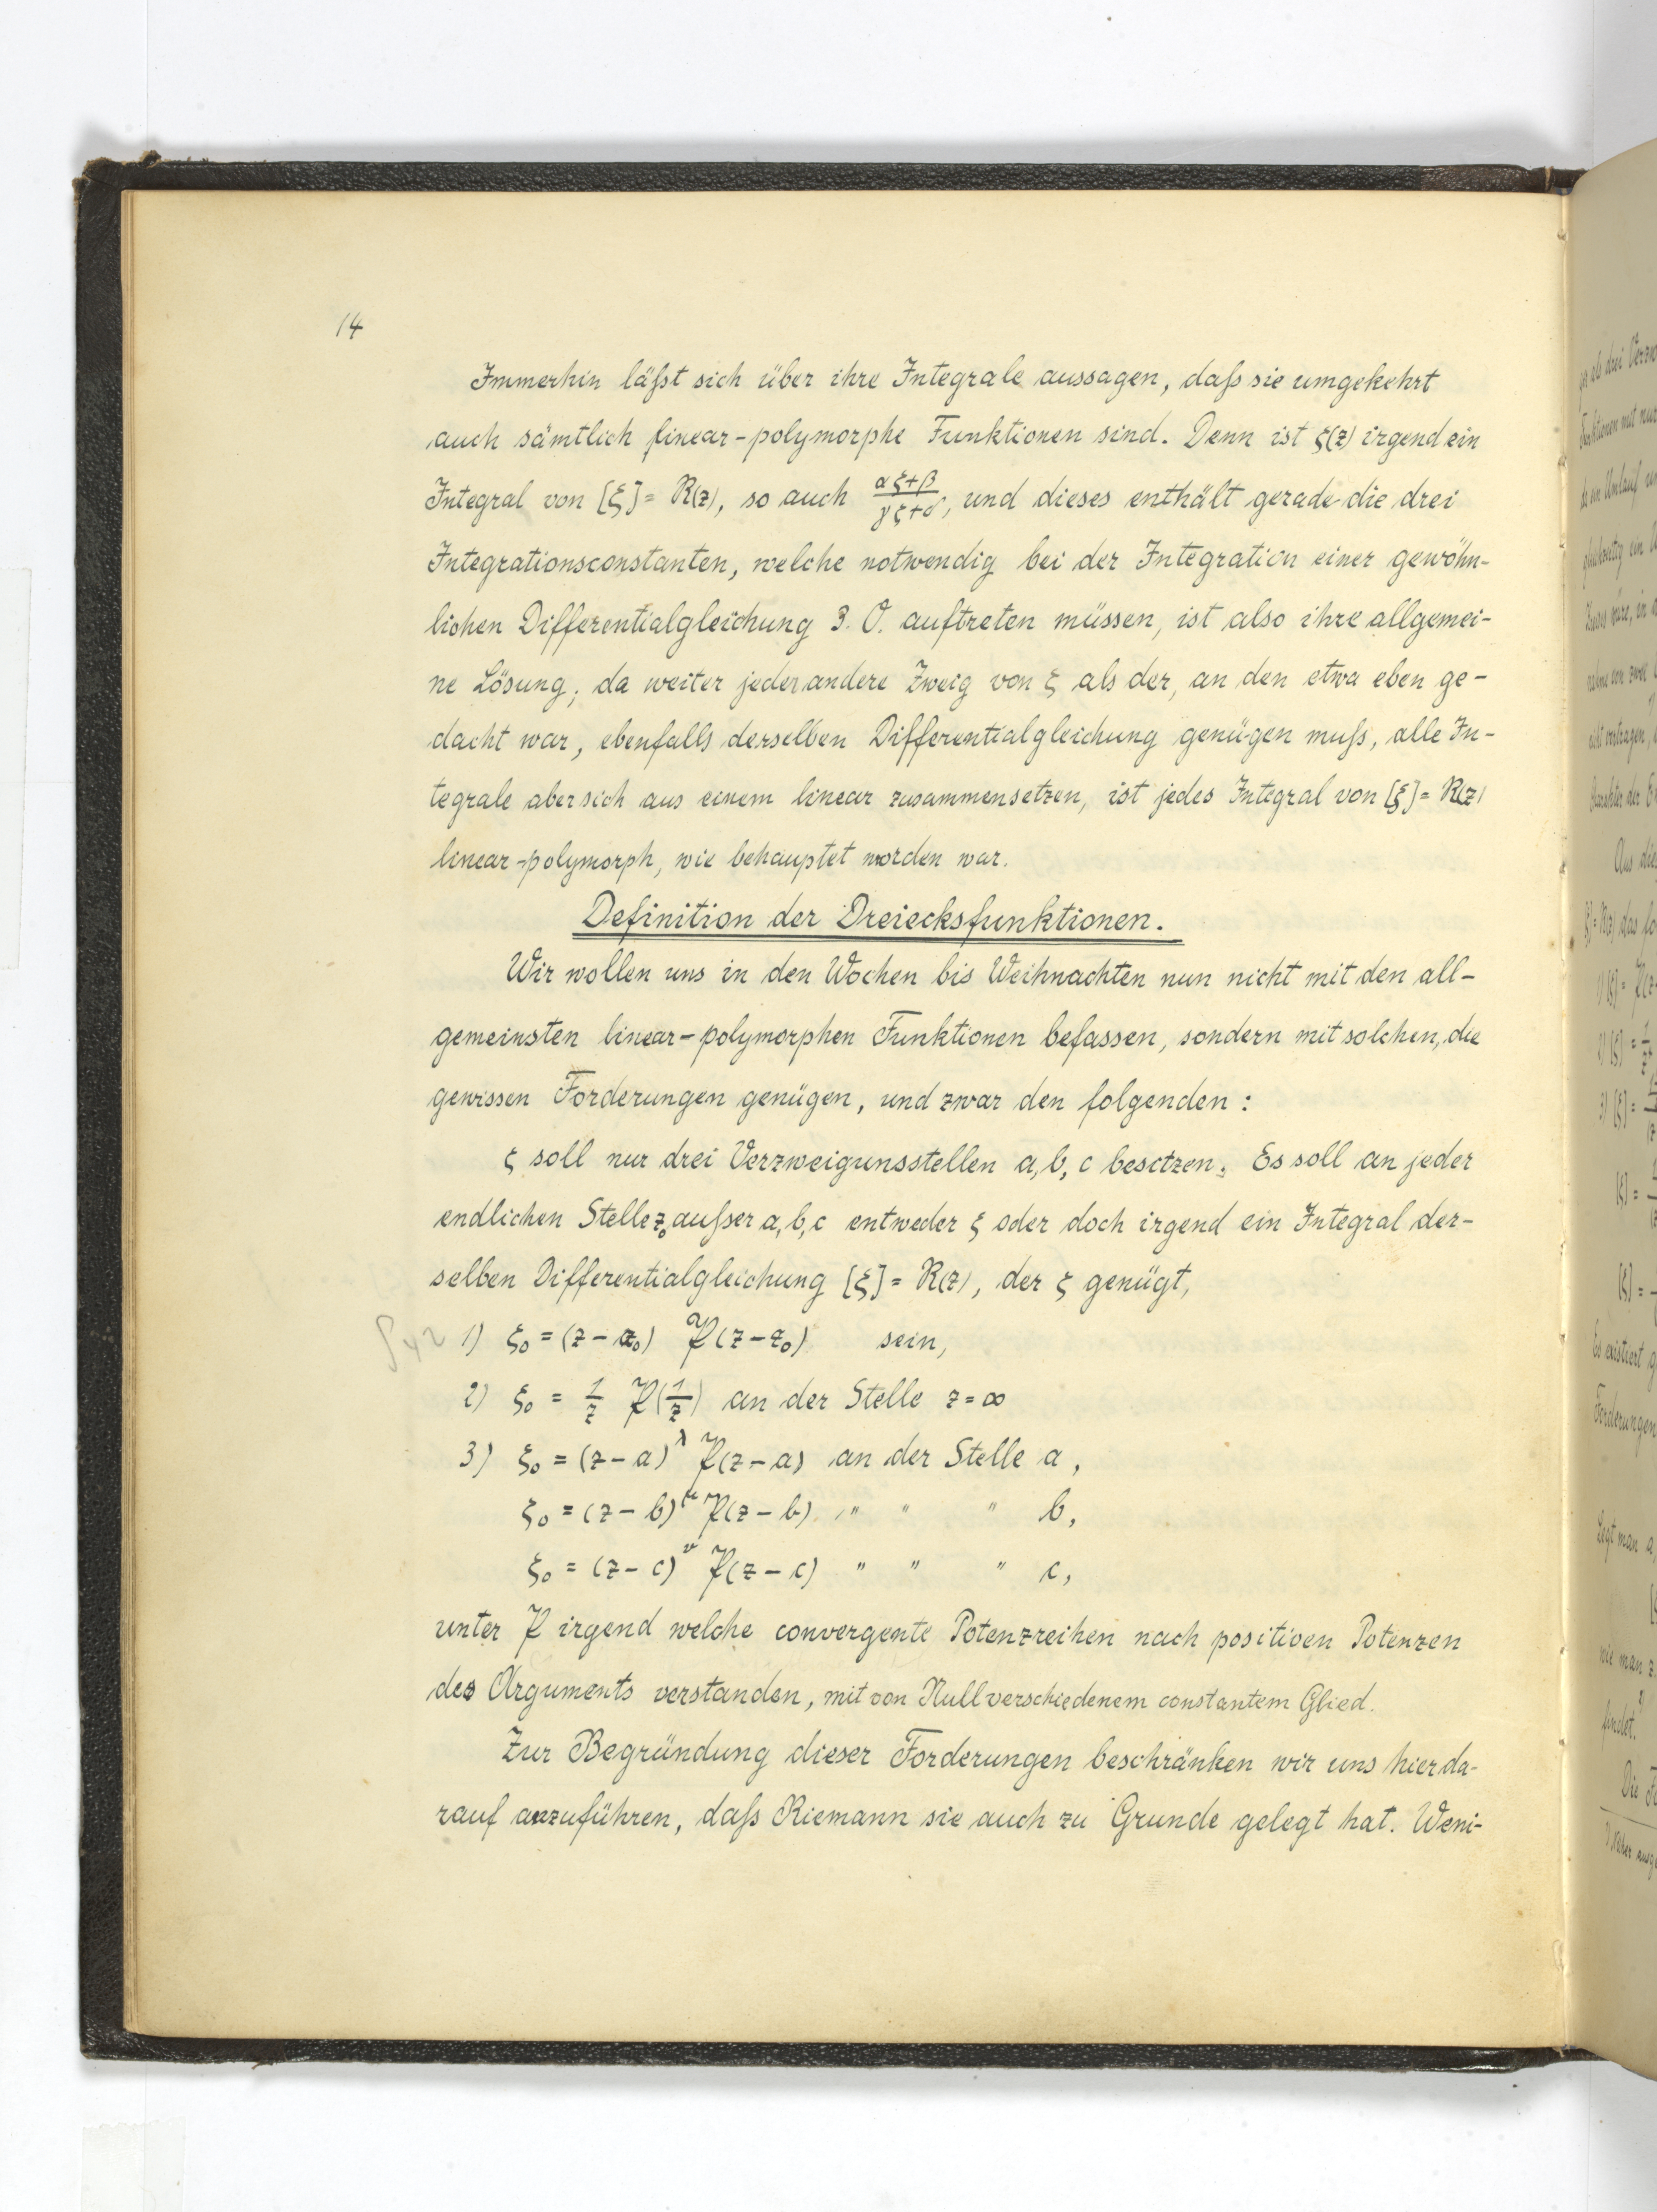 14
Immerhin läßt sich über ihre Integrale aussagen, daß sie umgekehrt
auch sämtlich linear-polymorphe Funktionen sind. Denn ist ζ(z) irgend ein
Integral von [ξ] = R(z), so auch (αζ+β)/(γζ+δ), und dieses enthält gerade die drei
Integrationsconstanten, welche notwendig bei der Integration einer gewöhn-
lichen Differentialgleichung 3. O. auftreten müssen, ist also ihre allgemei-
ne Lösung; da weiter jeder andere Zweig von ζ als der, an den etwa eben ge-
dacht war, ebenfalls derselben Differentialgleichung genügen muß, alle In-
tegrale aber sich aus einem linear zusammensetzen, ist jedes Integral von [ξ] = R(z)
linear-polymorph, wie behauptet worden war.
Definition der Dreiecksfunktionen.
Wir wollen uns in den Wochen bis Weihnachten nun nicht mit den all-
gemeinsten linear-polymorphen Funktionen befassen, sondern mit solchen, die
gewissen Forderungen genügen, und zwar den folgenden:
ζ soll nur drei Verzweigunsstellen a, b, c besitzen. Es soll an jeder
endlichen Stelle z₀ außer a, b, c entweder ζ oder doch irgend ein Integral der-
selben Differentialgleichung [ξ] = R(z), der ζ genügt,
1) ξ₀ = (z - z₀) 𝔓(z - z₀) sein,
2) ξ₀ = 1/z 𝔓(1/z) an der Stelle z = ∞
3) ξ₀ = (z - a)^λ 𝔓(z - a) an der Stelle a,
ξ₀ = (z - b)^μ 𝔓(z - b) " " " b,
ξ₀ = (z - c)^ν 𝔓(z - c) " " " c,
unter 𝔓 irgend welche convergente Potenzreihen nach positiven Potenzen
des Arguments verstanden, mit von Null verschiedenem constantem Glied.
Zur Begründung dieser Forderungen beschränken wir uns hier da-
rauf anzuführen, daß Riemann sie auch zu Grunde gelegt hat. Weni-